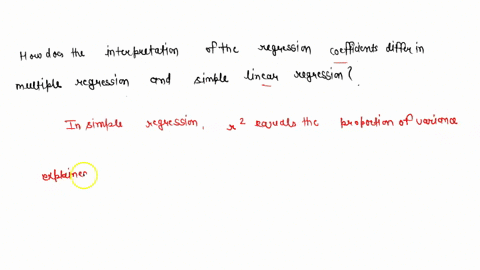 How does the interpretation of the regression coeffidents differ in
multiple regression and simple linear regression?
In simple regression, r² equals the proportion of variance
explaines